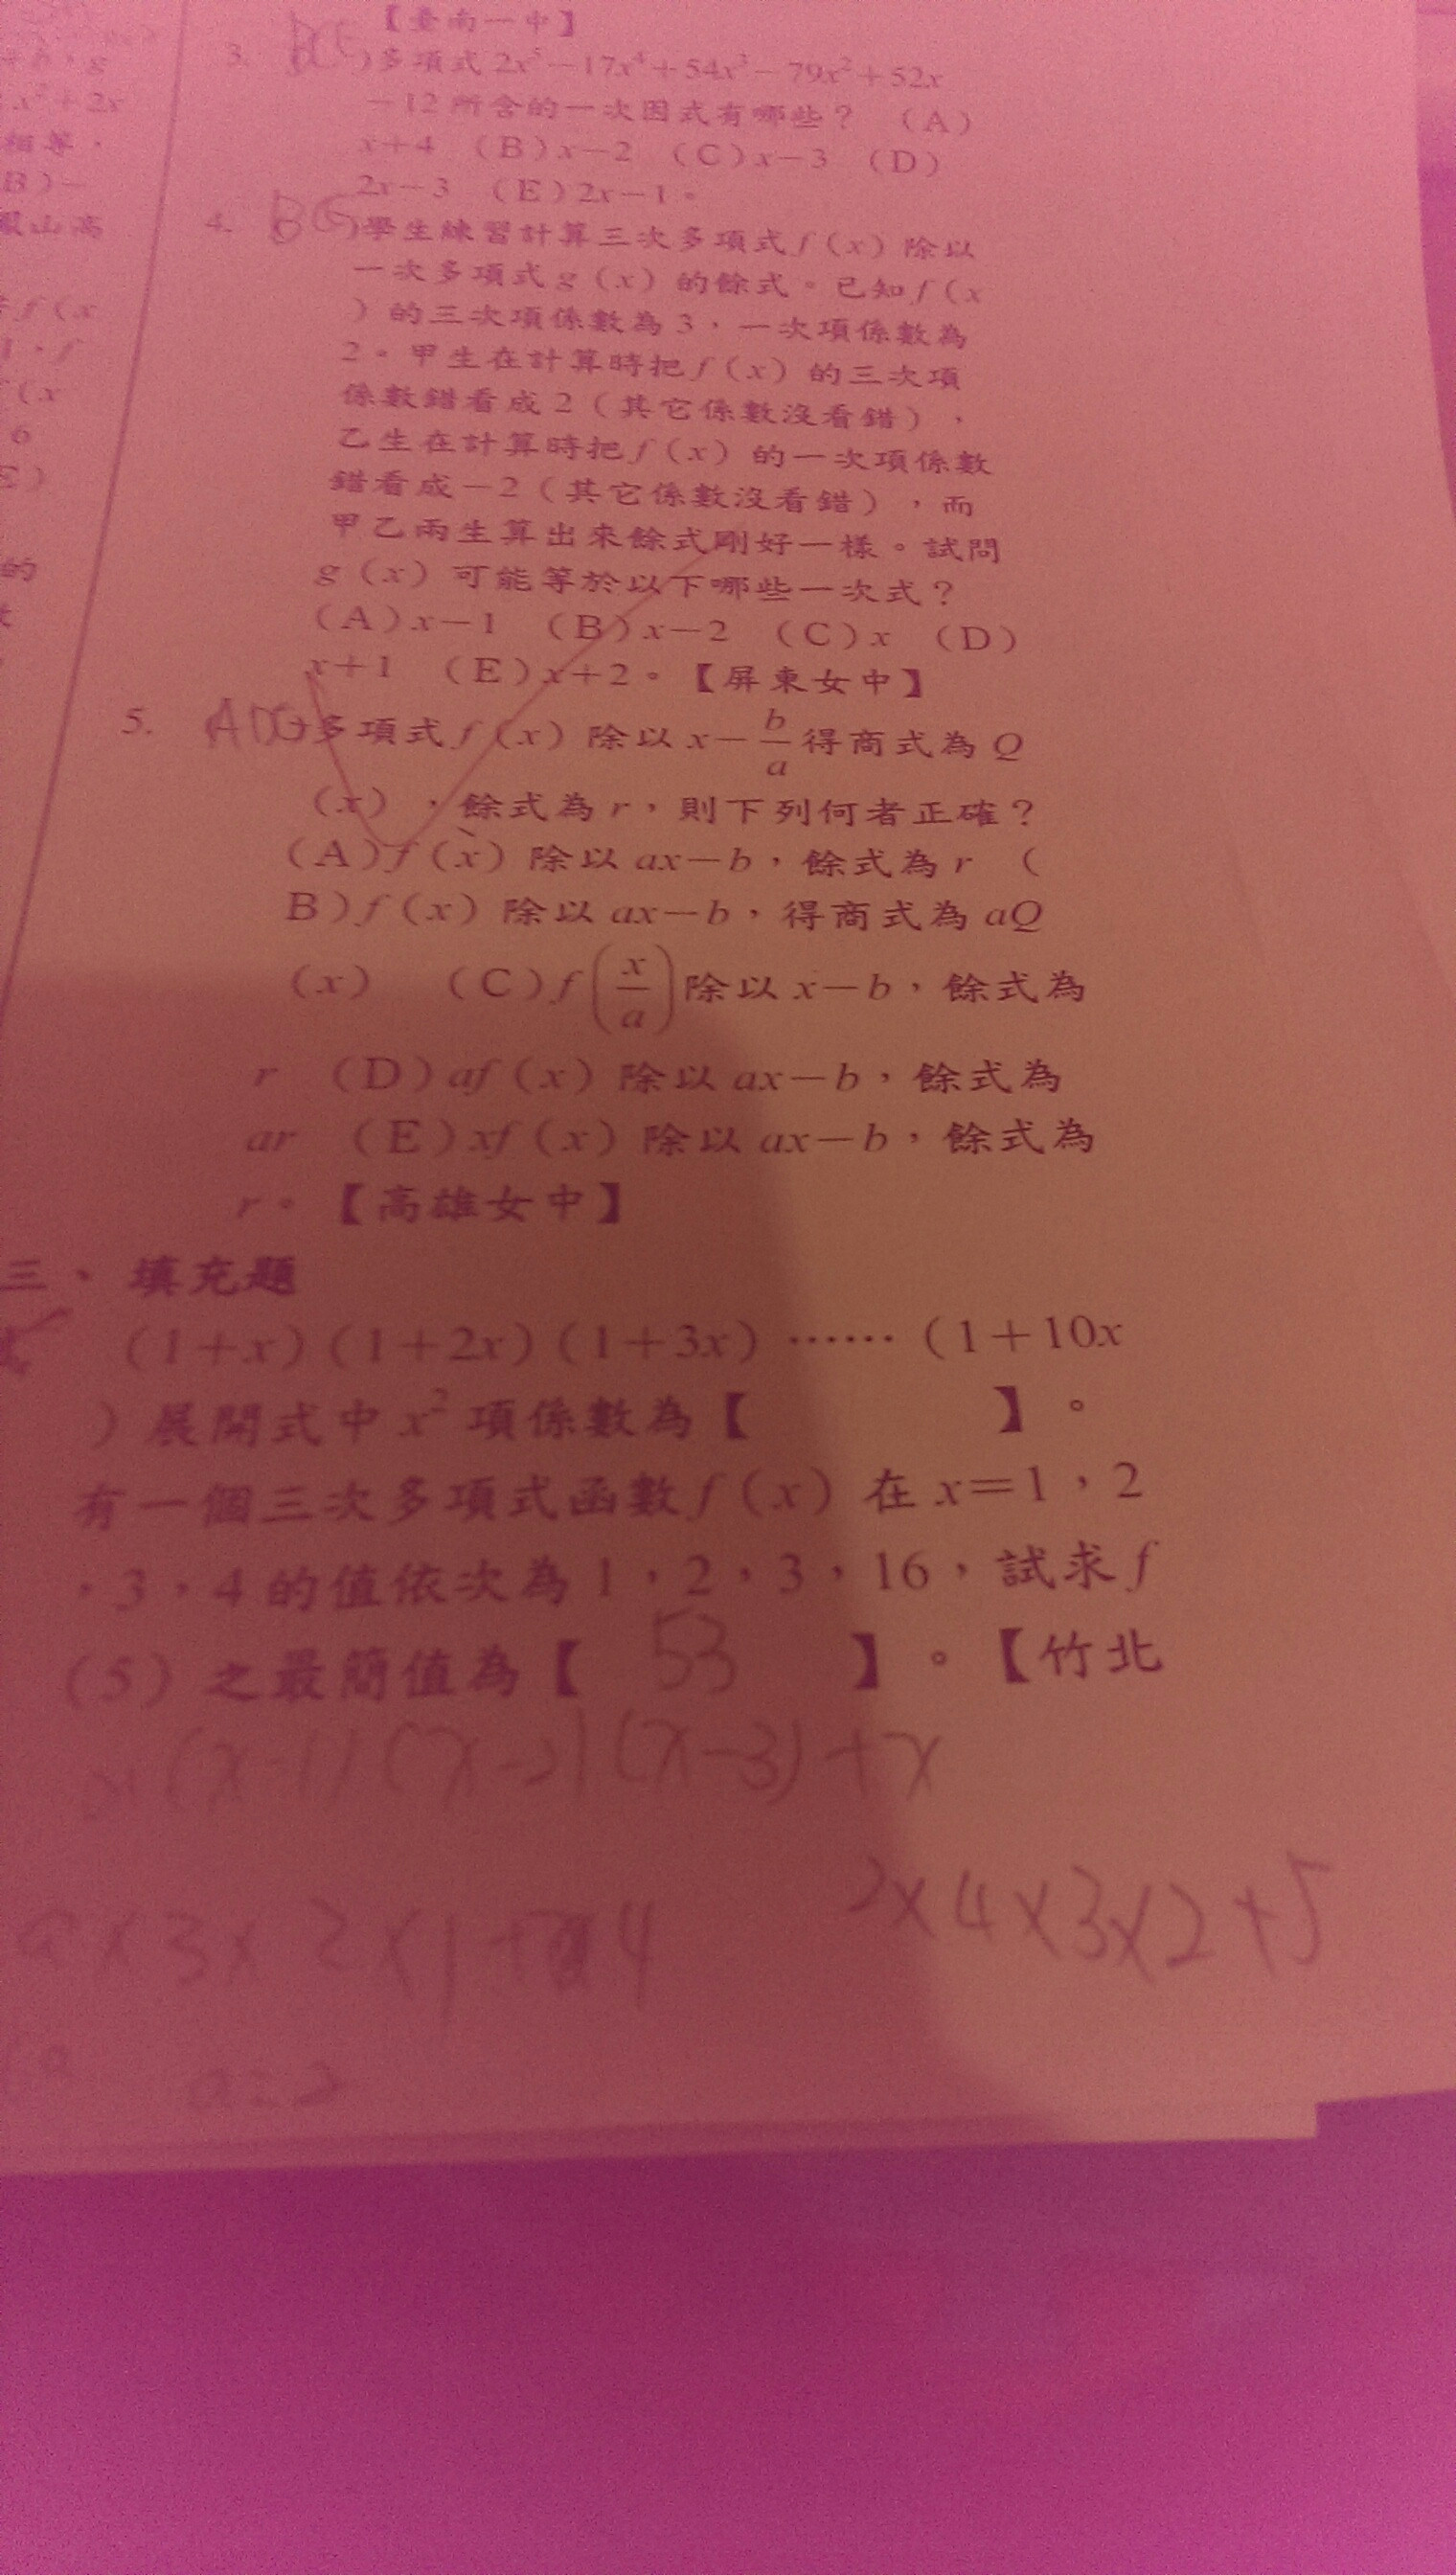 +b,g
x²+2x
相等,
B)-
鳳山高
f(x
1,f
(x
6
E)
的
【臺南一中】
3. BCE)多項式 2x⁵-17x⁴+54x³-79x²+52x
-12 所含的一次因式有哪些? (A)
x+4 (B)x-2 (C)x-3 (D)
2x-3 (E)2x-1。
4. BC)學生練習計算三次多項式 f(x) 除以
一次多項式 g(x)的餘式。已知 f(x
)的三次項係數為 3,一次項係數為
2。甲生在計算時把 f(x)的三次項
係數錯看成 2(其它係數沒看錯),
乙生在計算時把 f(x)的一次項係數
錯看成-2(其它係數沒看錯),而
甲乙兩生算出來餘式剛好一樣。試問
g(x)可能等於以下哪些一次式?
(A)x-1 (B)x-2 (C)x (D)
x+1 (E)x+2。【屏東女中】
5. ADC)多項式 f(x)除以 x-b/a 得商式為 Q
(x),餘式為 r,則下列何者正確?
(A)f(x)除以 ax-b,餘式為 r (
B)f(x)除以 ax-b,得商式為 aQ
(x) (C)f(x/a)除以 x-b,餘式為
r (D)af(x)除以 ax-b,餘式為
ar (E)xf(x)除以 ax-b,餘式為
r。【高雄女中】
三、填充題
(1+x)(1+2x)(1+3x)……(1+10x
)展開式中 x² 項係數為【 】。
有一個三次多項式函數 f(x)在 x=1,2
,3,4 的值依次為 1,2,3,16,試求 f
(5)之最簡值為【 53 】。【竹北
(x-1)(x-2)(x-3)+x
2×4×3×2+5
a×3×2×1+4
6a
a=2